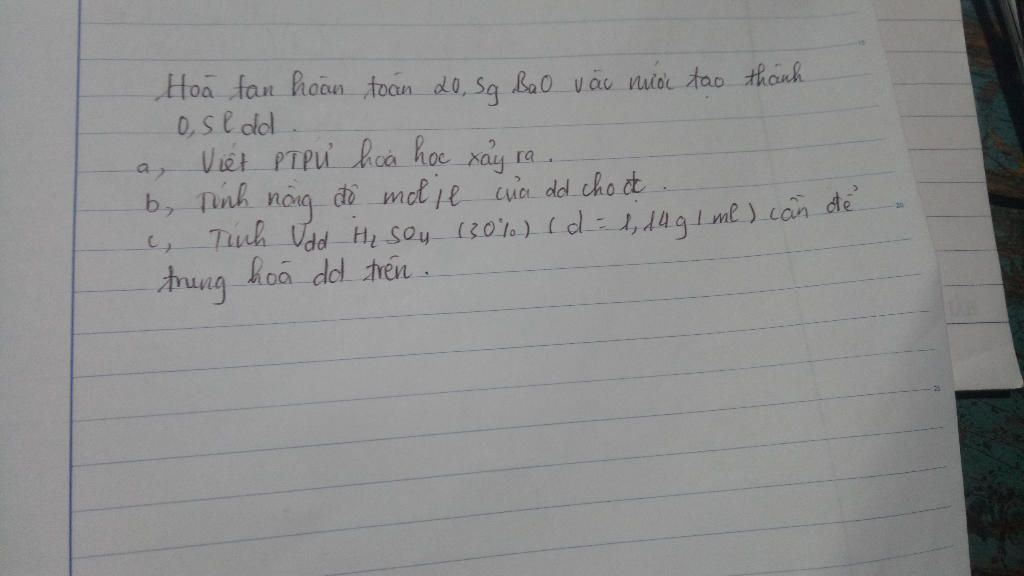 Hoà tan hoàn toàn 20,5g BaO vào nước tạo thành
0,5l dd.
a, Viết PTPƯ hoá học xảy ra.
b, Tính nồng độ mol/l của dd
c, Tính Vdd H2SO4 (30%) (d = 1,14g/ml) cần để
trung hoà dd trên.